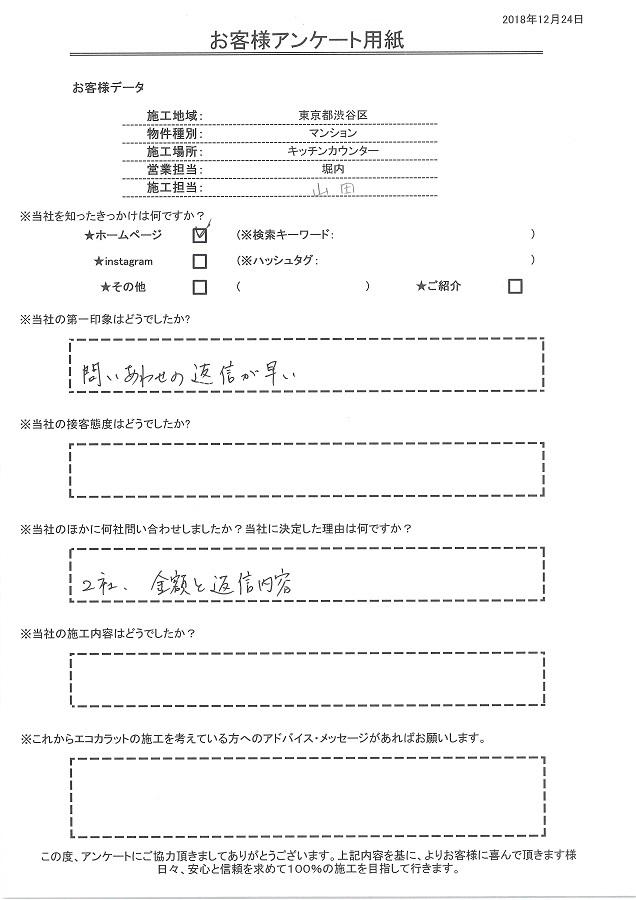 2018年12月24日
お客様アンケート用紙
お客様データ
施工地域: 東京都渋谷区
物件種別: マンション
施工場所: キッチンカウンター
営業担当: 堀内
施工担当: 山田
※当社を知ったきっかけは何ですか?
★ホームページ ☑ (※検索キーワード: )
★instagram □ (※ハッシュタグ: )
★その他 □ ( ) ★ご紹介 □
※当社の第一印象はどうでしたか?
問いあわせの返信が早い
※当社の接客態度はどうでしたか?
※当社のほかに何社問い合わせしましたか?当社に決定した理由は何ですか?
2社、金額と返信内容
※当社の施工内容はどうでしたか?
※これからエコカラットの施工を考えている方へのアドバイス・メッセージがあればお願いします。
この度、アンケートにご協力頂きましてありがとうございます。上記内容を基に、よりお客様に喜んで頂きます様
日々、安心と信頼を求めて100%の施工を目指して行きます。